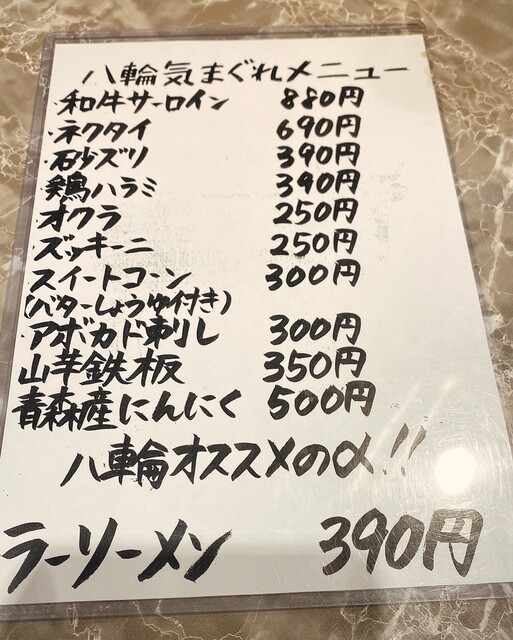 八輪気まぐれメニュー
・和牛サーロイン 880円
・ネクタイ 690円
・砂ズリ 390円
・鶏ハラミ 390円
・オクラ 250円
・ズッキーニ 250円
・スイートコーン 300円
(バターしょうゆ付き)
・アボカド刺し 300円
山芋鉄板 350円
青森産にんにく 500円
八輪オススメのα!!
ラーソーメン 390円